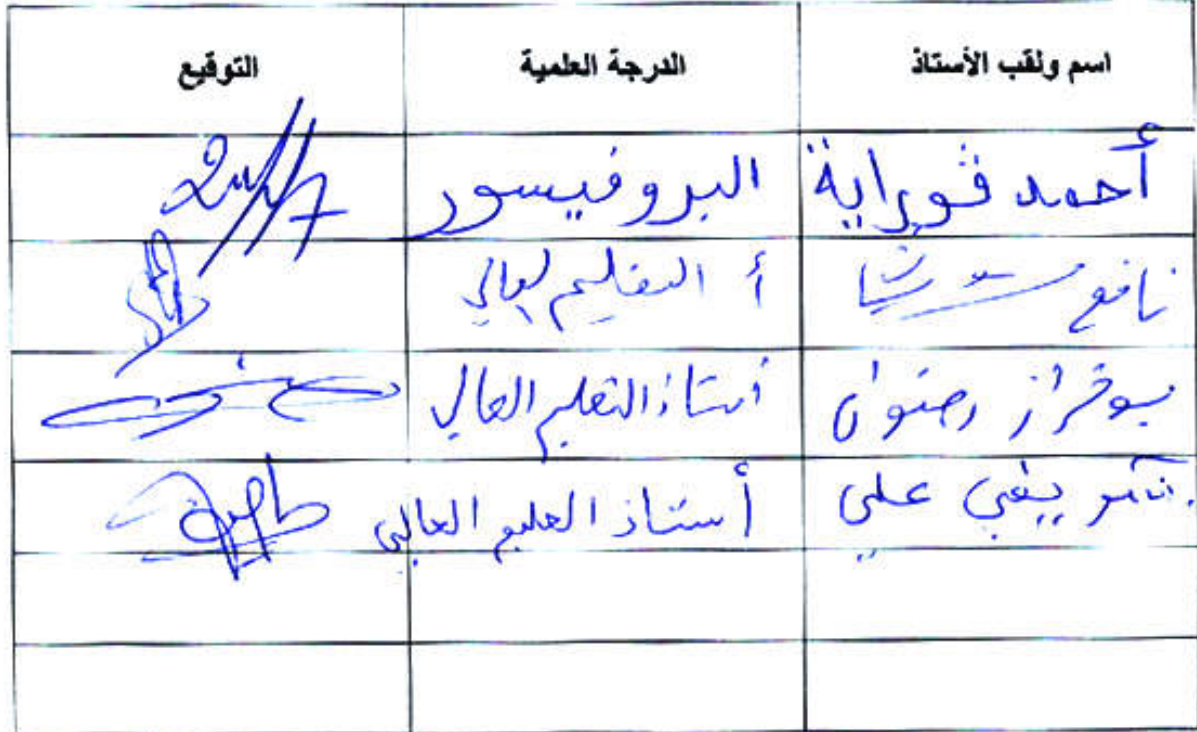 اسم ولقب الأستاذ الدرجة العلمية التوقيع
أحمد قوراية البروفيسور
نافع أ التعليم العالي
بوخراز رضوان أستاذ التعليم العالي
علي أستاذ العليم العالي